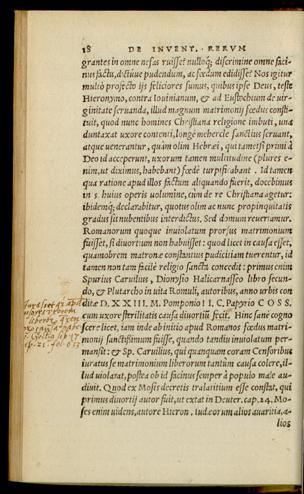 18 DE INVENT. RERVM
grantes in omne nefas ruisset nulloq; discrimine omne faci-
nus factu, dictúue pudendum, ac foedum edidisset Nos igitur
multo profecto ijs feliciores sumus, quibus ipse Deus, teste
Hieronymo, contra Iouinianum, & ad Eustochium de uir-
ginitate seruanda, illud magnum matrimonij foedus consti-
tuit, quod nunc homines Christiana religione imbuti, una
duntaxat uxore contenti, longè mehercle sanctius seruant,
atque uenerantur, quàm olim Hebræi, qui tametsi primi à
Deo id acceperunt, uxorum tamen multitudine (plures e-
nim, ut diximus, habebant) foedè turpificabant. Id tamen
qua ratione apud illos factum aliquando fuerit, docebimus
in 5. huius operis uolumine, cùm de re Christiana agetur:
ibidemq; declarabitur, quotus olim ac nunc propinquitatis
gradus sit nubentibus interdictus. Sed domum reuertamur.
Romanorum quoque inuiolatum prorsus matrimonium
fuisset, si diuortium non habuisset: quod licet in causa esset,
quamobrem matronæ constantius pudicitiam tuerentur, id
tamen non tam facilè religio sancta concedit: primus enim
Spurius Caruilius, Dionysio Halicarnasseo libro secun-
do, & Plutarcho in uita Romuli, autoribus, anno urbis con-
ditæ D. XXIII, M. Pomponio I I, C. Papyrio C O S S.
cum uxore sterilitatis causa diuortiū fecit. Hinc sanè cogno
scere licet, iam inde ab initio apud Romanos foedus matri-
monij sanctissimum fuisse, quando tandiu inuiolatum per-
mansit: & Sp. Caruilius, qui quanquam coram Censoribus
iuratus se matrimonium liberorum tantùm causa colere, il-
lud uiolarat, postea ob id facinus semper à populo malè au-
diuit. Quod ex Mosis decretis tralatitium esse constat, qui
primus diuortij autor fuit, ut extat in Deuter. cap. 24. Mo-
ses enim uidens, autore Hieron. Iudæorum alios auaritia, a-
lios